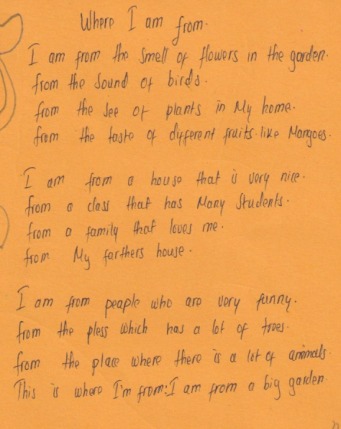 Where I am from.
I am from the smell of flowers in the garden.
from the sound of birds.
from the see of plants in My home.
from the taste of different fruits like Mangoes.
I am from a house that is very nice.
from a class that has Many Students.
from a family that loves me.
from My farthers house.
I am from peaple who are very funny.
from the pless which has a lot of trees.
from the place where there is a lot of animals.
This is where I'm from: I am from a big garden.